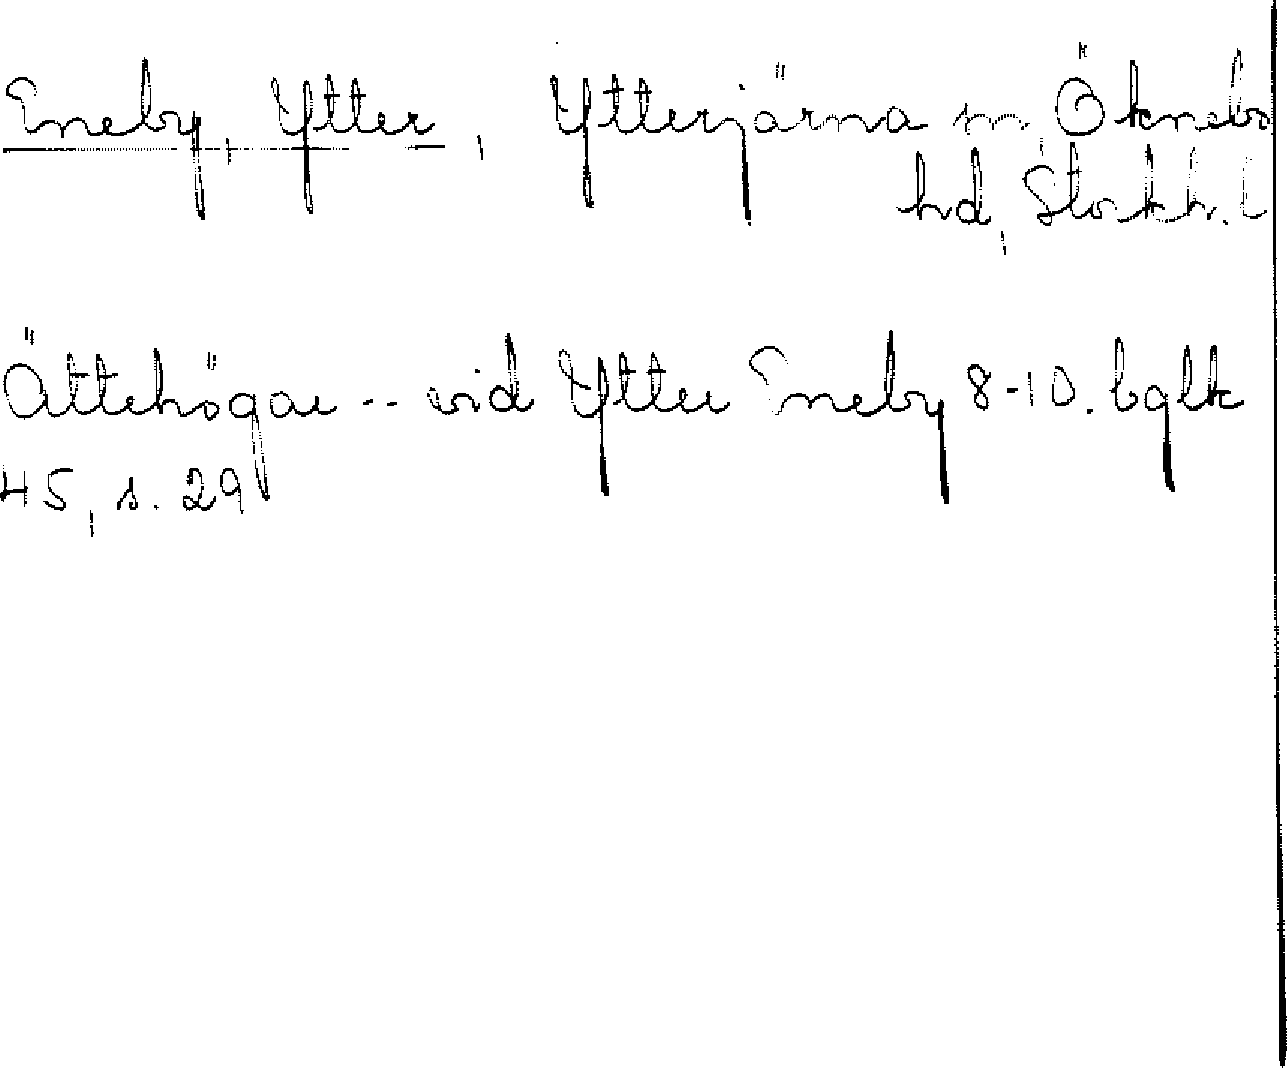 Eneby, Ytter, Ytterjärna sn, Öknebo
hd, Stockh. l
Ättehögar -- vid Ytter Eneby 8-10. bglk
45, s. 29